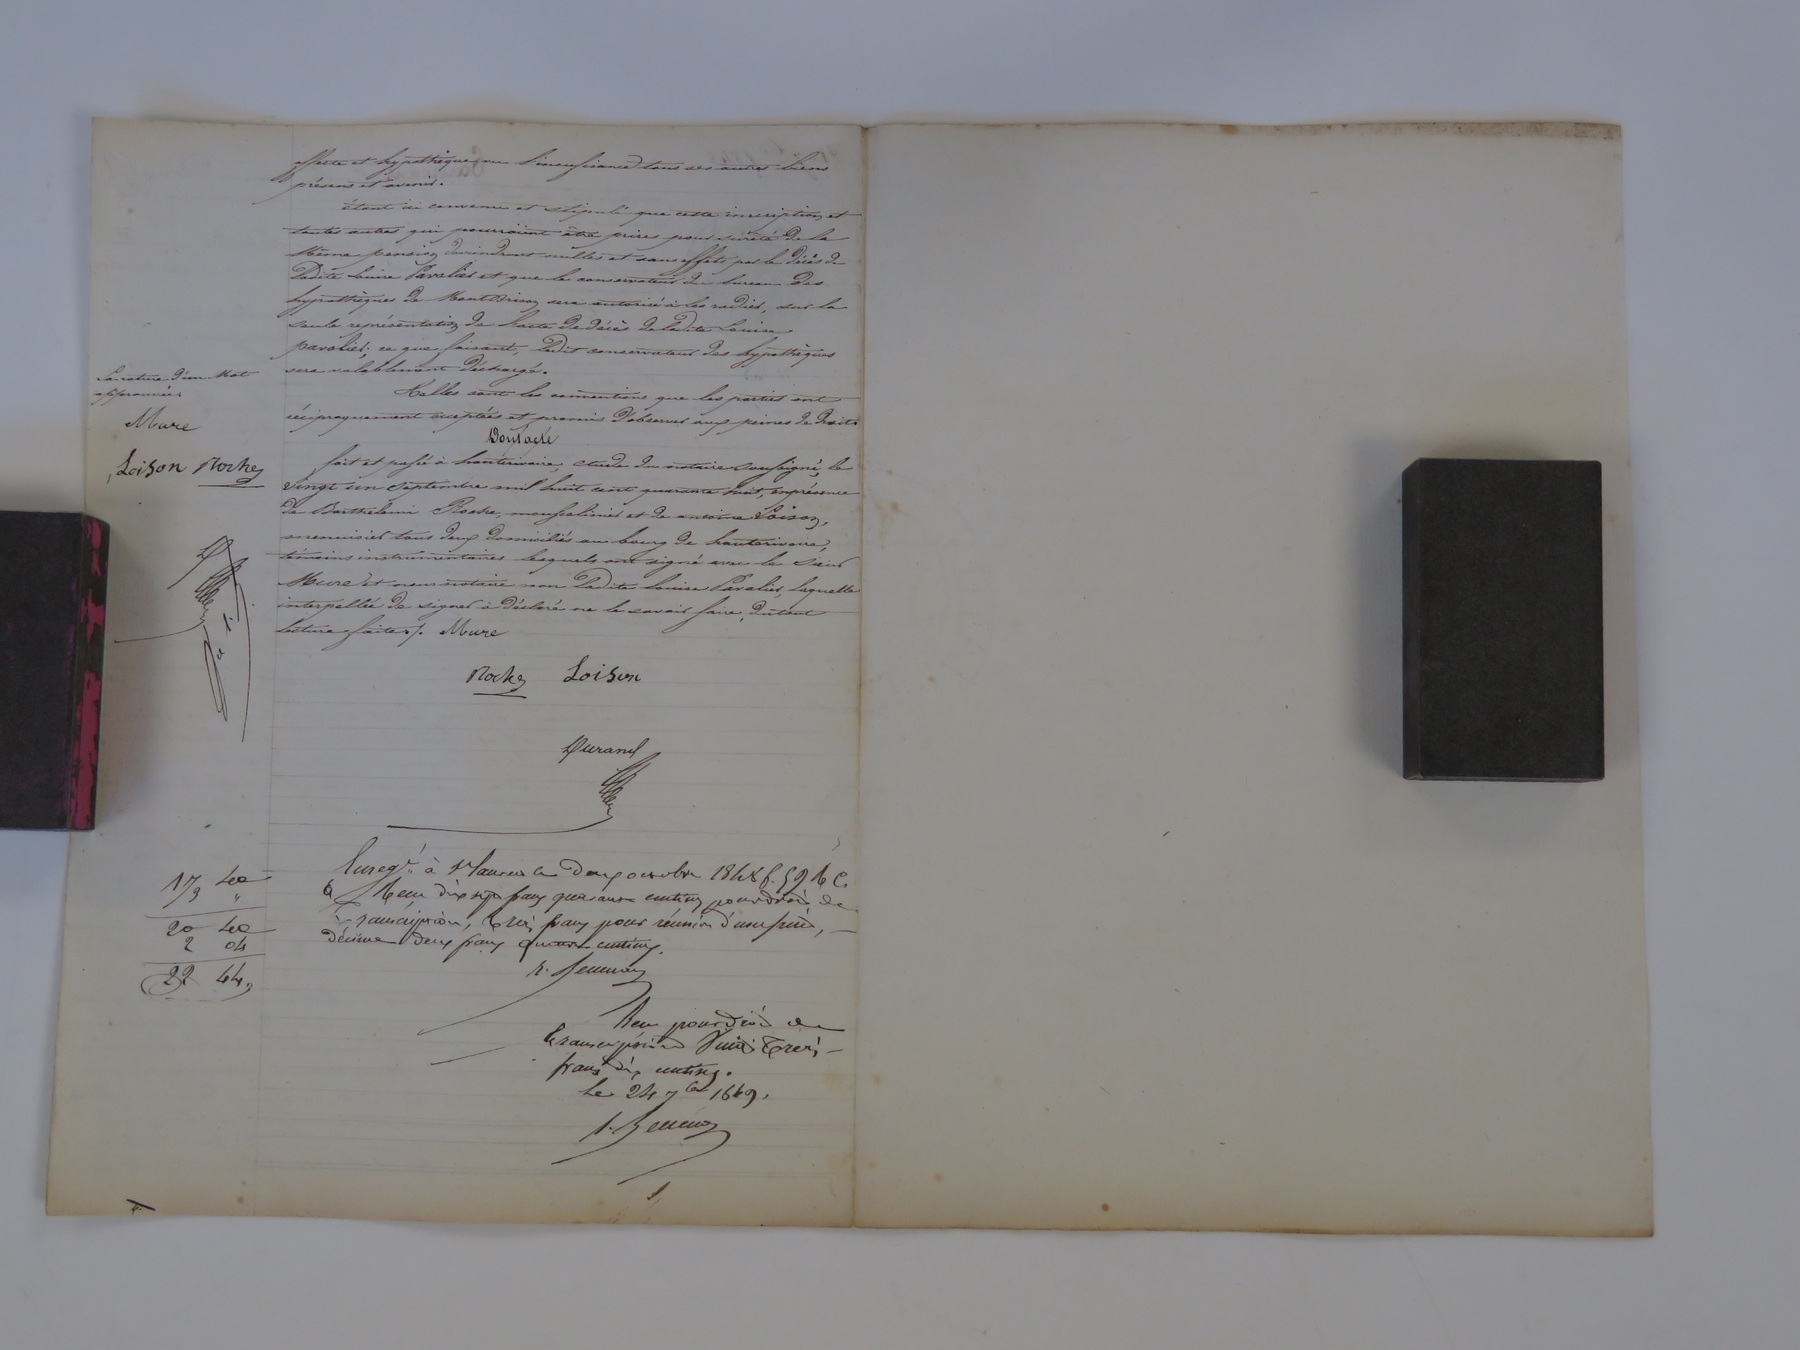 affecte et hypothèque, en l'insuffisance tous ses autres biens
présens et avenir.
étant ici convenu et stipulé que cette inscription, et
toutes autres qui pourroient être prises pour sureté de la
même pension, deviendront nulles et sans effets par le décès de
Ladite Louise Pavalier et que le conservateur du bureau des
hypothèques de Montbrison, sera autorisé à les radier, sur la
seule représentation de l'acte de décès de Ladite Louise
pavalier; ce que faisant, Ledit conservateur des hypothèques
sera valablement déchargé.
Telles sont les conventions que les parties ont
réciproquement acceptées et promis d'observer aux peines de droit.
Dont acte
fait et passé à hauterivoire, étude du notaire soussigné, le
vingt un septembre mil huit cent quarante huit, en présence
de Barthélemi Roche, et de antoine Loison,
menuisier tous deux domiciliés au bourg de hauterivoire,
témoins instrumentaires lesquels ont signé avec le sieur
Mure et nous notaire non Ladite Louise Pavalier, laquelle
interpellée de signer a déclaré ne le savoir faire, du tout
lecture faite. Mure
La rature d'un Mot
approuvée
Mure
Loison Roche
Roche Loison
Durand
Enreg.é à St Laurent le deux octobre 1848 f. 52 R C.
6 Reçu dix sept francs quarante centimes pour droit de
transcription, trois francs pour réunion d'usufruit,
décime deux francs quatre centimes.
17 40
3 "
20 40
2 04
22 44
Reçu pour droit de
transcription vingt trois
francs dix centimes.
Le 24 7bre 1849.